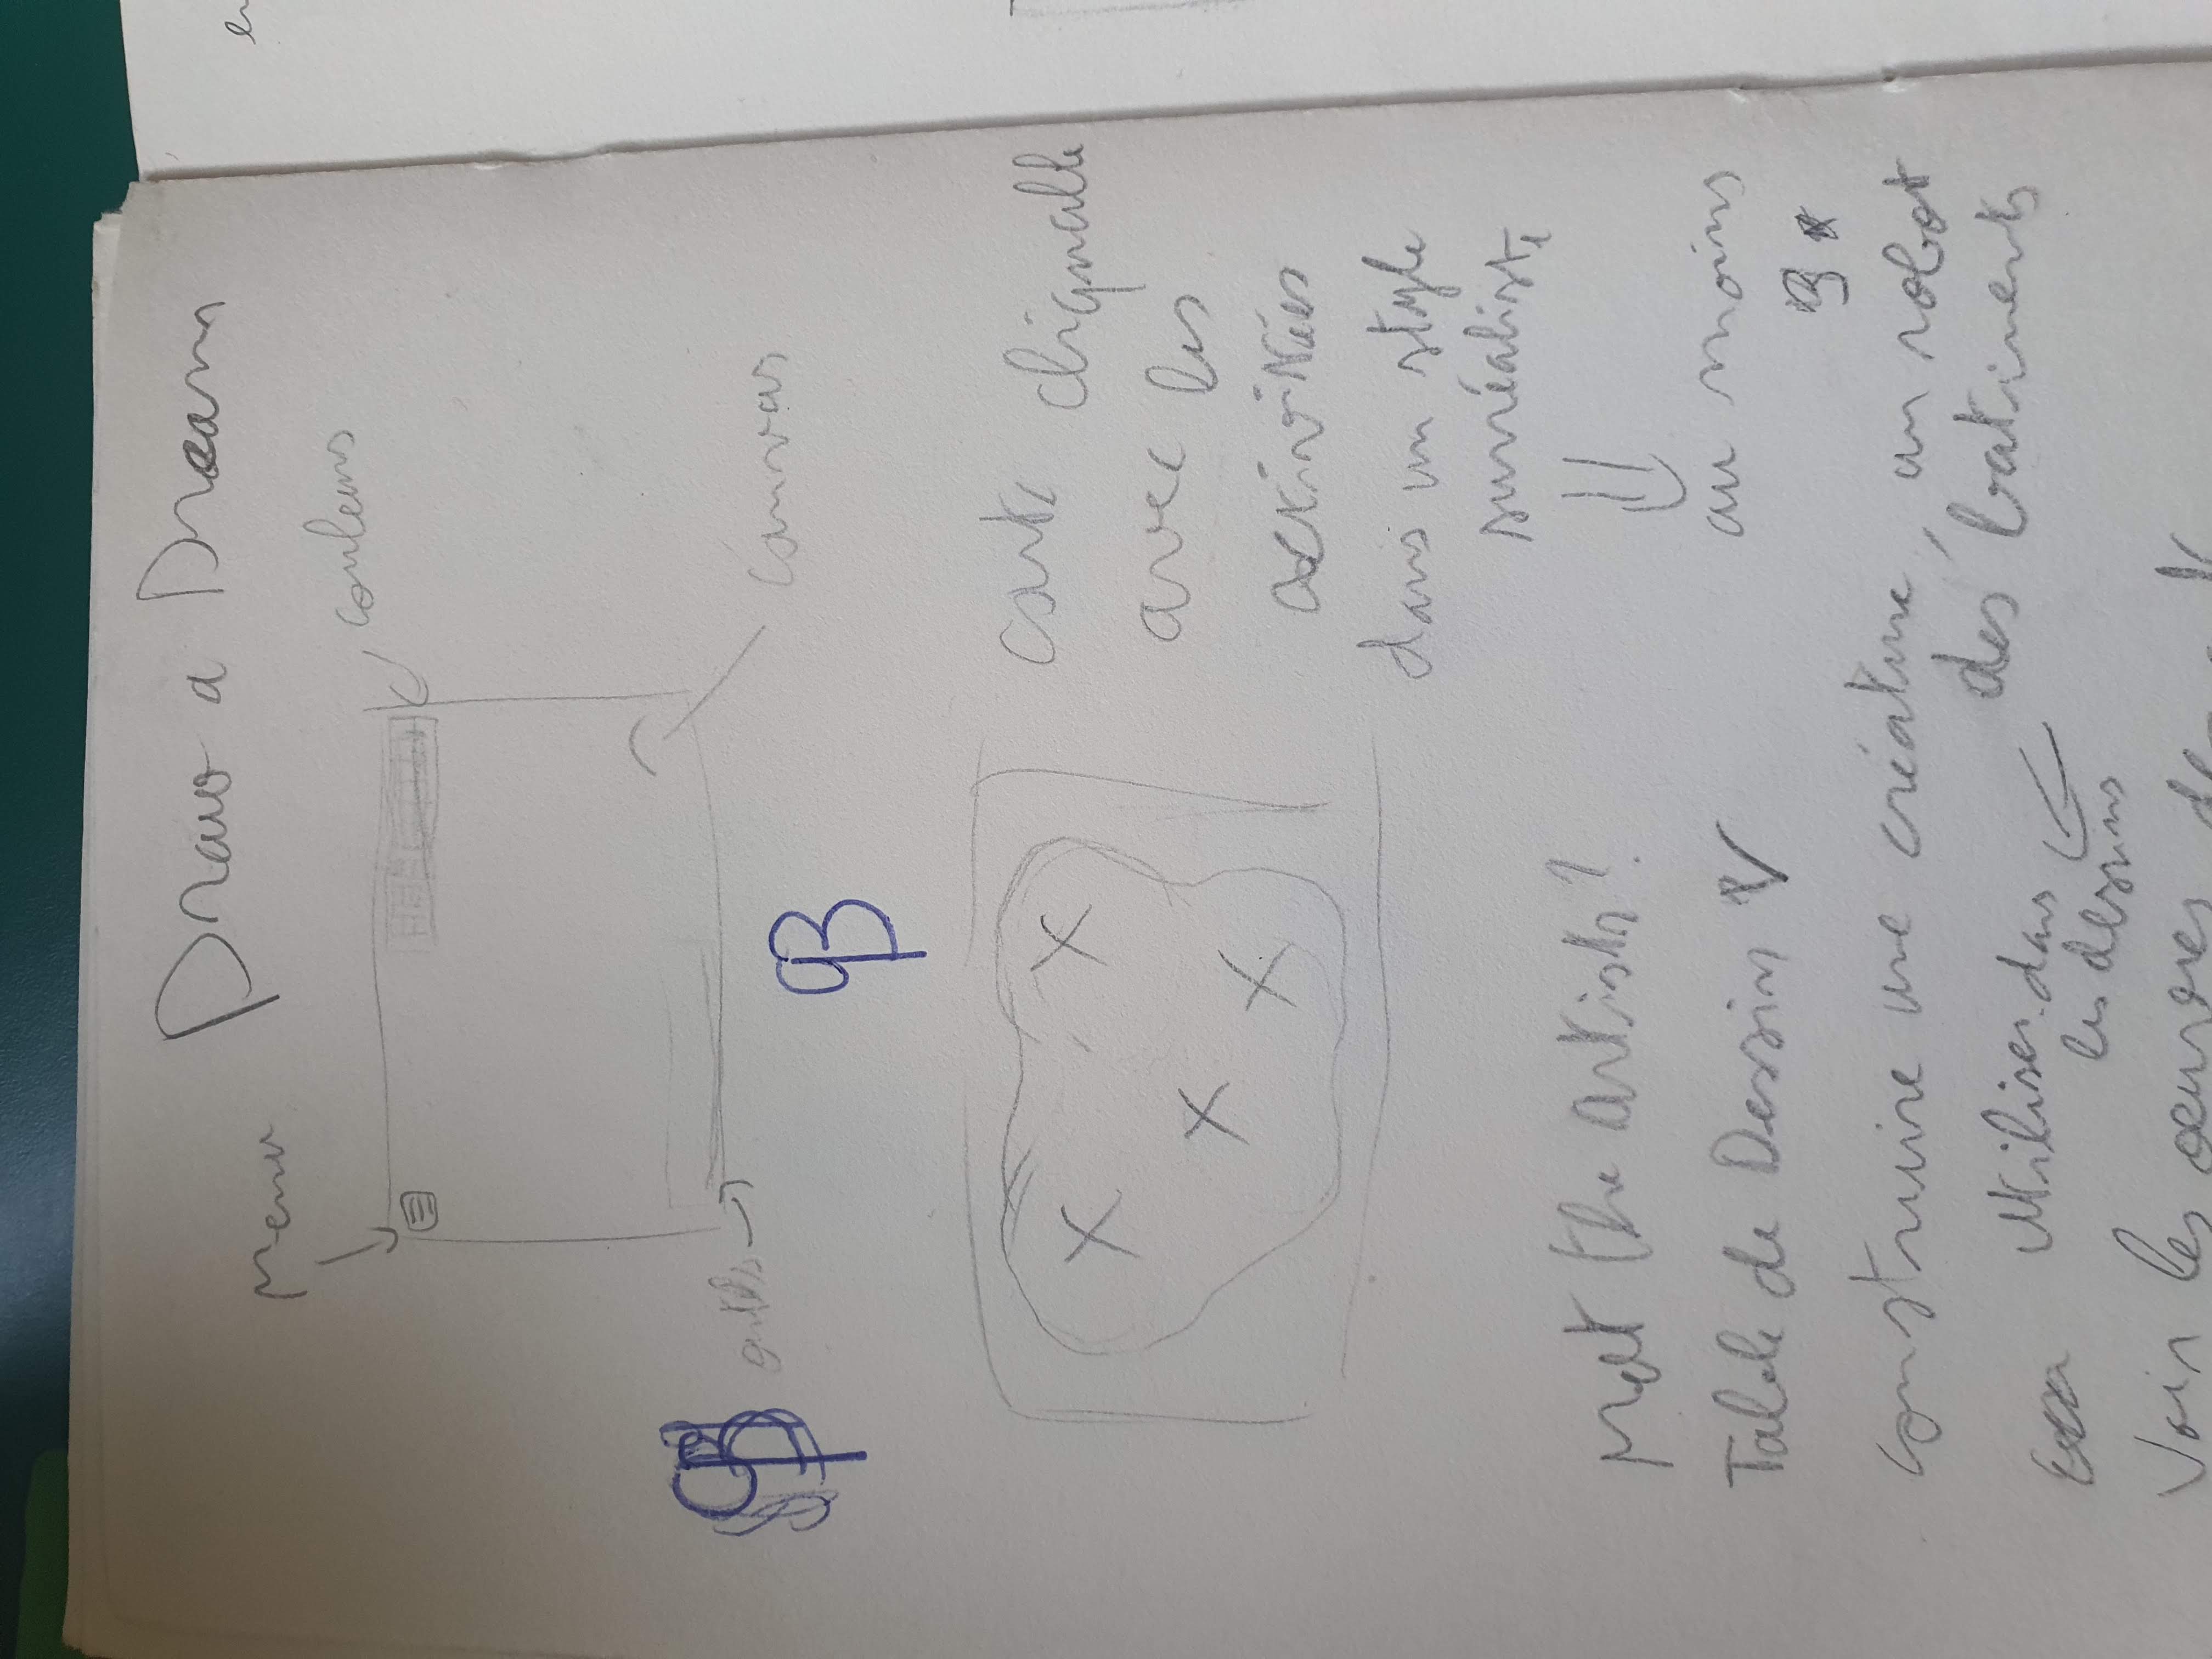 Draw a Dream
Menu
couleurs
outils
canvas
carte cliquable
avec les
activitées
dans un style
surréaliste
au moins
3
Meet the Artists?
Table de Dessin V
construire une créature, un robot
des batiments
Utiliser dans
les dessins
Voir les oeuvres